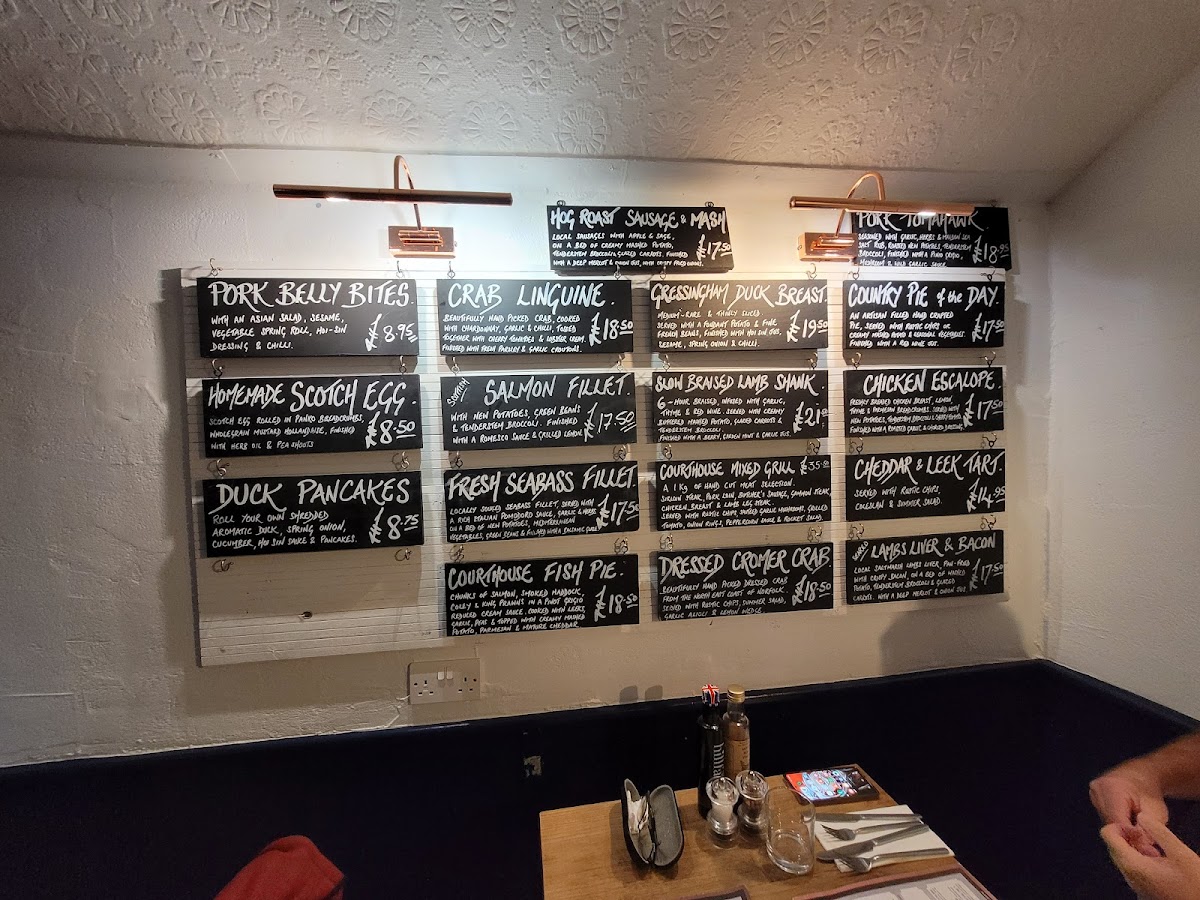 HOG ROAST SAUSAGE & MASH
LOCAL SAUSAGES WITH APPLE & SAGE,
ON A BED OF CREAMY MASHED POTATO,
TENDERSTEM BROCCOLI, GLAZED CARROTS, FINISHED
WITH A DEEP MERLOT & ONION JUS, WITH CRISPY FRIED ONIONS.
£17.50
PORK TOMAHAWK
SEASONED WITH GARLIC, HERBS & MALDON SEA
SALT RUB, ROASTED NEW POTATOES, TENDERSTEM
BROCCOLI, FINISHED WITH A PINO GRIGIO,
MUSHROOM & WILD GARLIC SAUCE.
£18.95
PORK BELLY BITES.
WITH AN ASIAN SALAD, SESAME,
VEGETABLE SPRING ROLL, HOI-SIN
DRESSING & CHILLI.
£8.95
HOMEMADE SCOTCH EGG.
SCOTCH EGG ROLLED IN PANKO BREADCRUMBS,
WHOLEGRAIN MUSTARD HOLLANDAISE, FINISHED
WITH HERB OIL & PEA SHOOTS
£8.50
DUCK PANCAKES
ROLL YOUR OWN SHREDDED
AROMATIC DUCK, SPRING ONION,
CUCUMBER, HOI SIN SAUCE & PANCAKES.
£8.75
CRAB LINGUINE.
BEAUTIFULLY HAND PICKED CRAB, COOKED
WITH CHARDONNAY, GARLIC & CHILLI, TOSSED
TOGETHER WITH CHERRY TOMATOES & LOBSTER CREAM.
FINISHED WITH FRESH PARSLEY & GARLIC CROUTONS.
£18.50
SCOTTISH SALMON FILLET.
WITH NEW POTATOES, GREEN BEANS
& TENDERSTEM BROCCOLI. FINISHED
WITH A ROMESCO SAUCE & GRILLED LEMON
£17.50
FRESH SEABASS FILLET.
LOCALLY SOUCED SEABASS FILLET, SERVED WITH
A RICH ITALIAN POMODORO SAUCE, GARLIC & HERBS
ON A BED OF NEW POTATOES, MEDITERRANEAN
VEGETABLES, GREEN BEANS & FINISHED WITH BALSAMIC GLAZE
£17.50
COURTHOUSE FISH PIE.
CHUNKS OF SALMON, SMOKED HADDOCK,
COLEY & KING PRAWNS IN A PINOT GRIGIO
REDUCED CREAM SAUCE. COOKED WITH LEEKS,
GARLIC, PEAS & TOPPED WITH CREAMY MASHED
POTATO, PARMESAN & MATURE CHEDDAR
£18.50
GRESSINGHAM DUCK BREAST.
MEDIUM-RARE & THINLY SLICED
SERVED WITH A FONDANT POTATO & FINE
FRENCH BEANS, FINISHED WITH HOI SIN JUS,
SESAME, SPRING ONION & CHILLI.
£19.50
SLOW BRAISED LAMB SHANK.
6-HOUR BRAISED, INFUSED WITH GARLIC,
THYME & RED WINE. SERVED WITH CREAMY
BUTTERED MASHED POTATO, GLAZED CARROTS &
TENDERSTEM BROCCOLI.
FINISHED WITH A BERRY, GARDEN MINT & GARLIC JUS.
£21.00
COURTHOUSE MIXED GRILL £35.00
A 1 KG OF HAND CUT MEAT SELECTION.
SIRLOIN STEAK, PORK LOIN, BUTCHER'S SAUSAGE, GAMMON STEAK,
CHICKEN BREAST & LAMB LEG STEAK.
SERVED WITH RUSTIC CHIPS, GLAZED GARLIC MUSHROOMS, GRILLED
TOMATO, ONION RINGS, PEPPERCORN SAUCE & ROCKET SALAD.
DRESSED CROMER CRAB
BEAUTIFULLY HAND PICKED DRESSED CRAB
FROM THE NORTH EAST COAST OF NORFOLK.
SERVED WITH RUSTIC CHIPS, SUMMER SALAD,
GARLIC AIOLI & LEMON WEDGE
£18.50
COUNTRY PIE of the DAY.
AN ARTISAN FILLED HAND CRIMPED
PIE, SERVED WITH RUSTIC CHIPS OR
CREAMY MASHED POTATO & SEASONAL VEGETABLES.
FINISHED WITH A RED WINE JUS.
£17.50
CHICKEN ESCALOPE.
FRESHLY BREADED CHICKEN BREAST, LEMON,
THYME & PARMESAN BREADCRUMBS. SERVED WITH
NEW POTATOES, TENDERSTEM BROCCOLI &
FINISHED WITH A ROASTED GARLIC &
£17.50
CHEDDAR & LEEK TART.
SERVED WITH RUSTIC CHIPS,
COLESLAW & SUMMER SALAD.
£14.95
LAMBS LIVER & BACON
LOCAL SALTMARSH LAMBS LIVER, PAN-FRIED
WITH CRISPY BACON, ON A BED OF MASHED
POTATO, TENDERSTEM BROCCOLI & GLAZED
CARROTS. WITH A DEEP MERLOT & ONION JUS.
£17.50